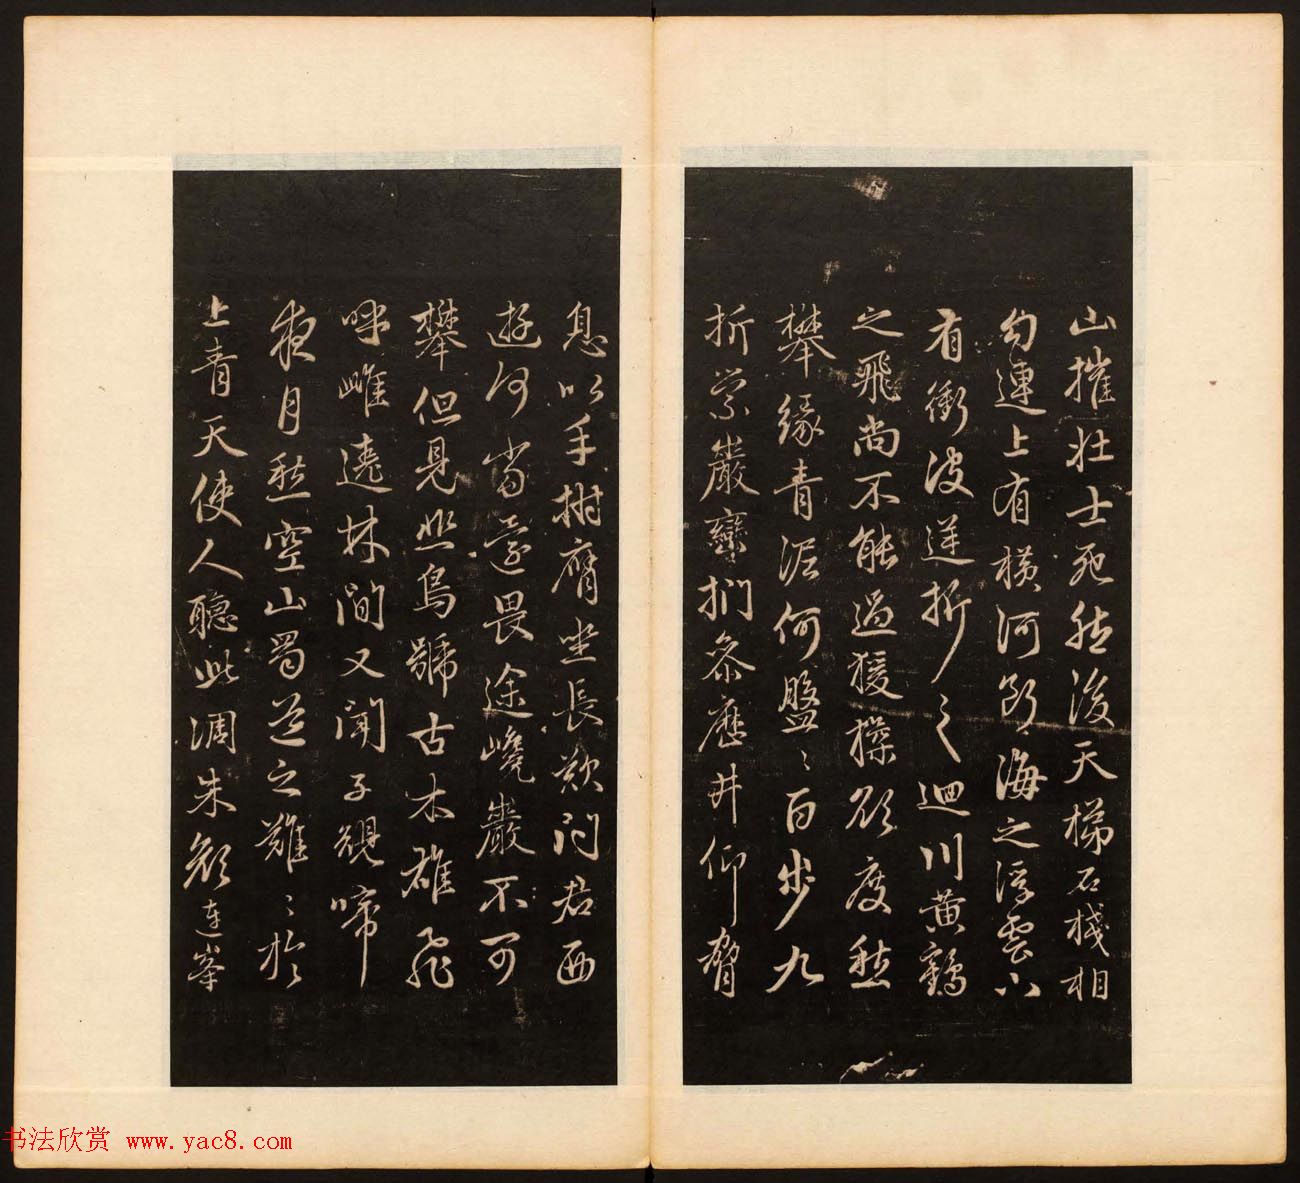 山摧壯士死然後天梯石棧相
勾連上有橫河斷海之浮雲下
有衝波逆折之迴川黃鶴
之飛尚不能過猨猱欲度愁
攀緣青泥何盤〻百步九
折縈巖巒捫參歷井仰脅
息以手拊膺坐長歎問君西
遊何當還畏途巉巖不可
攀但見悲鳥號古木雄飛
呼雌遶林間又聞子規啼
夜月愁空山蜀道之難〻於
上青天使人聽此凋朱顏連峯
书法欣赏 www.yac8.com